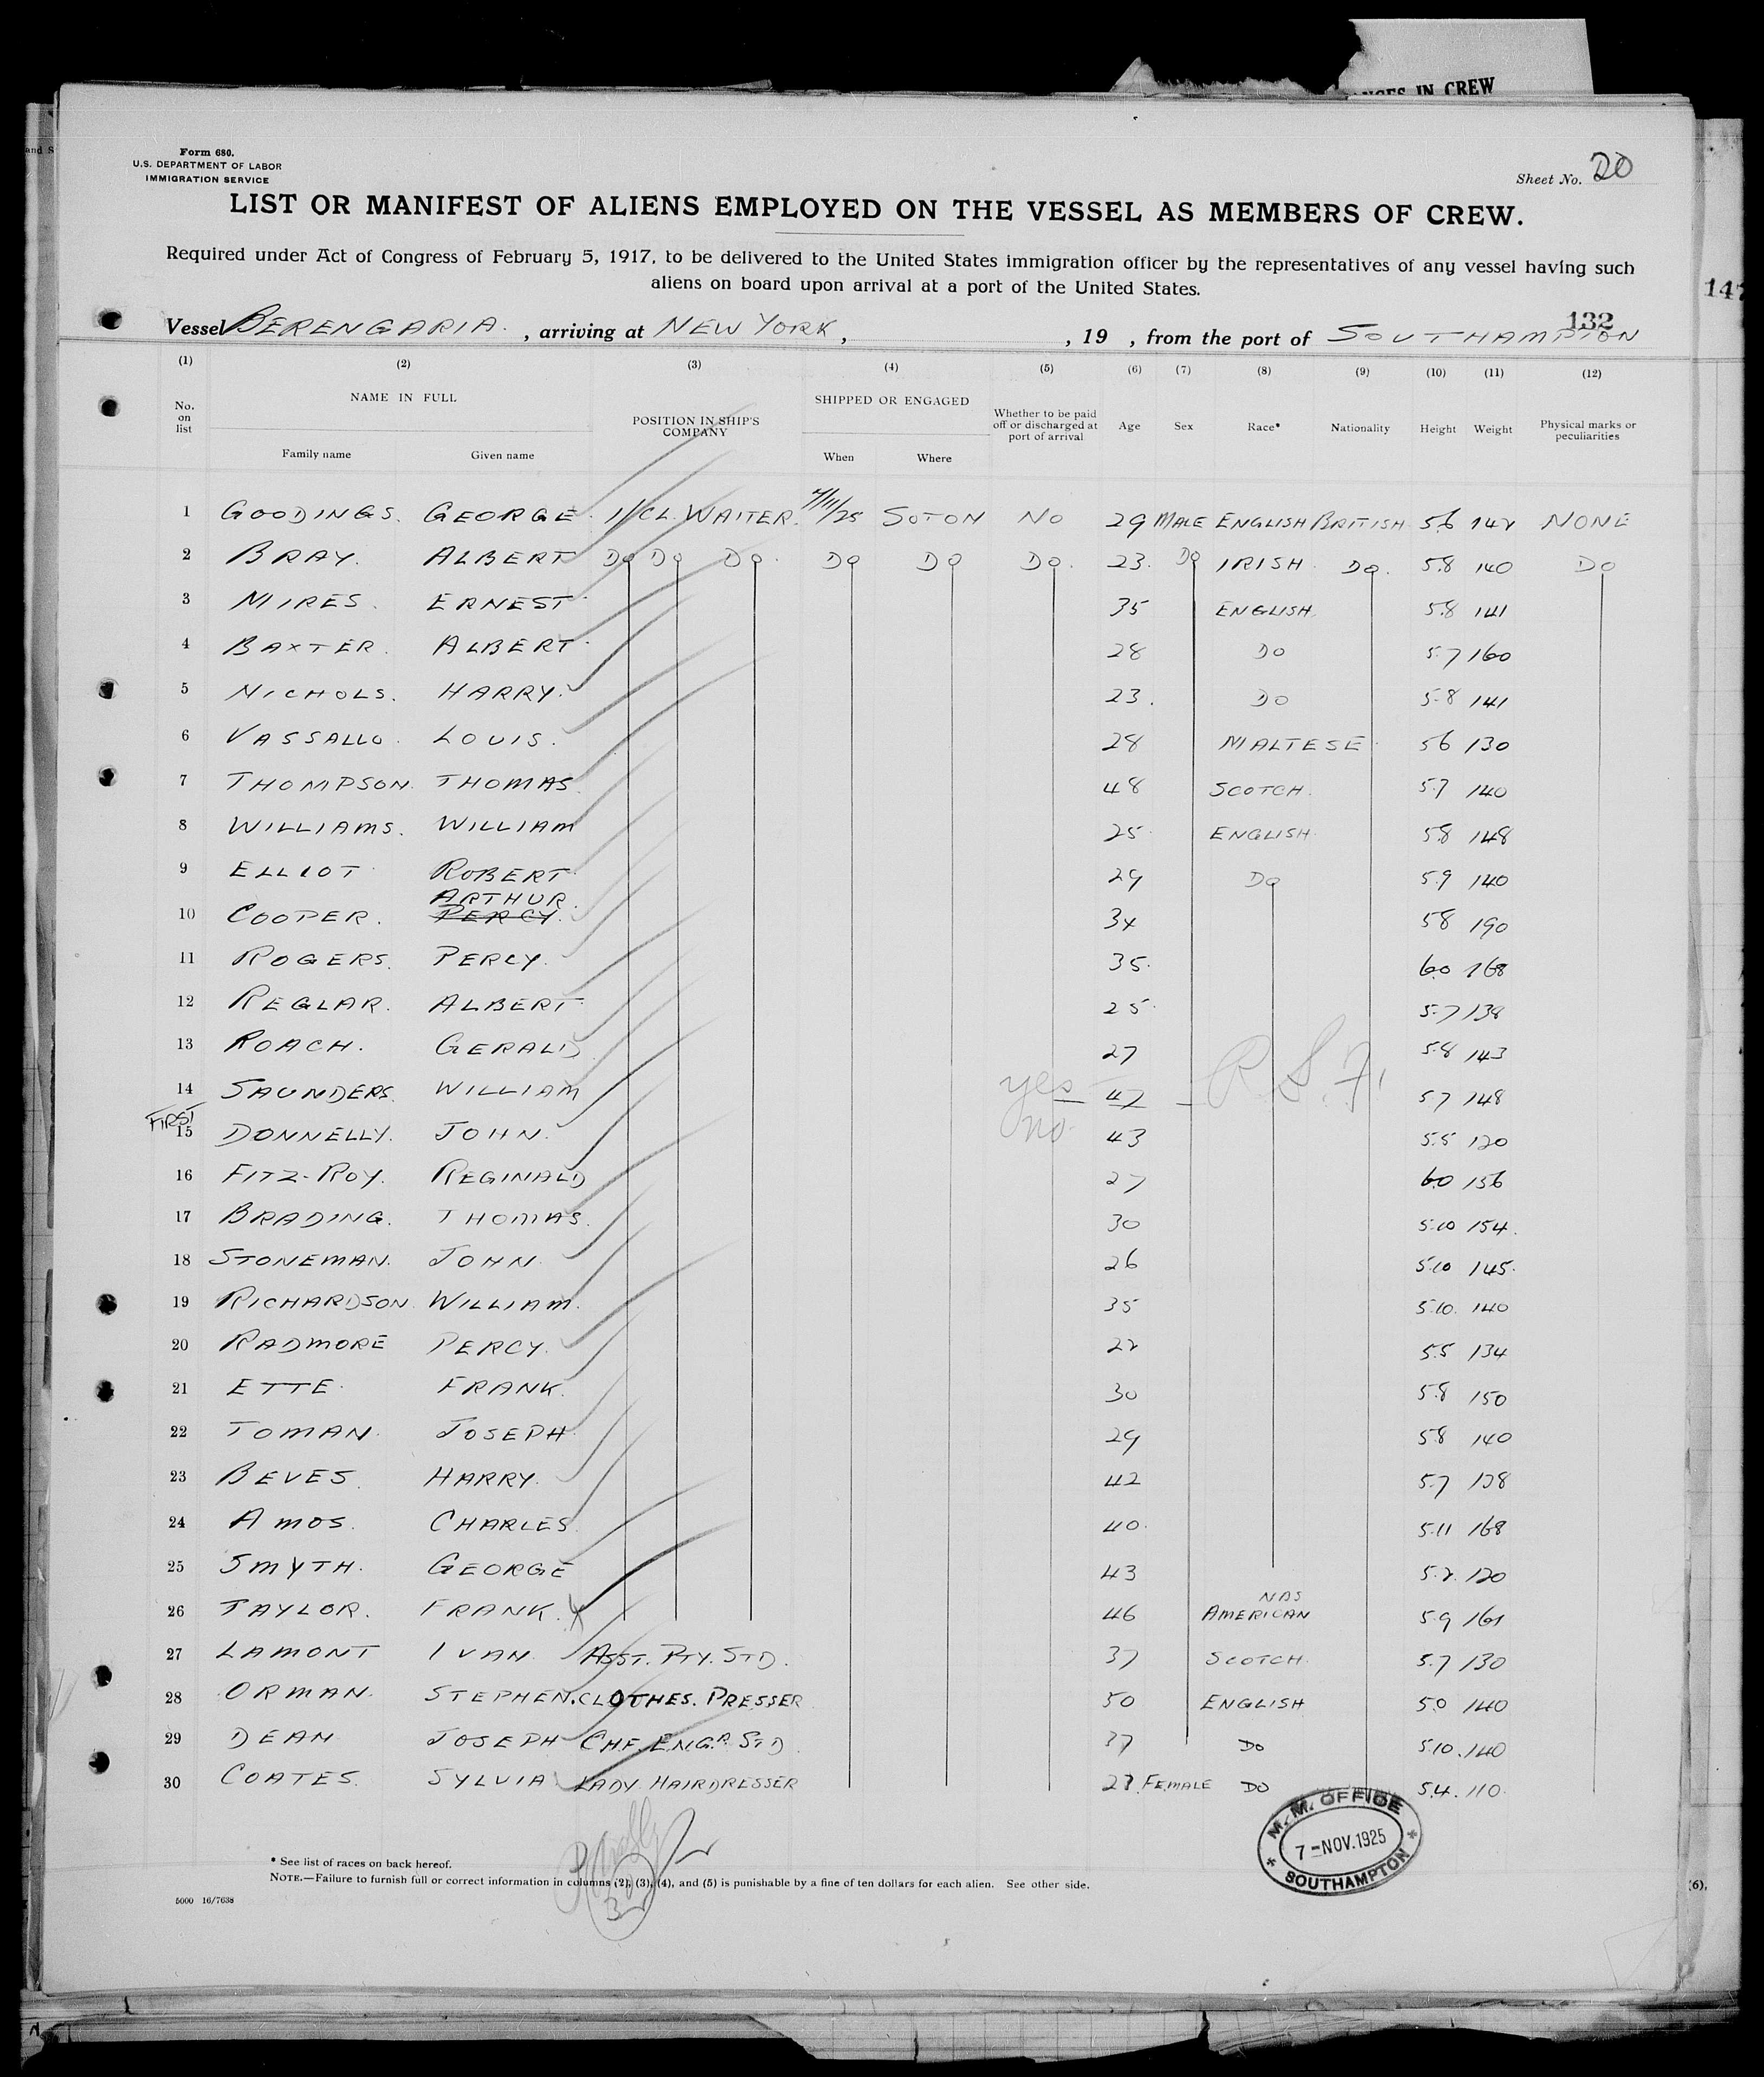 ANGES IN CREW
and S
Form 680.
U.S. DEPARTMENT OF LABOR
IMMIGRATION SERVICE
Sheet No. 20
LIST OR MANIFEST OF ALIENS EMPLOYED ON THE VESSEL AS MEMBERS OF CREW.
Required under Act of Congress of February 5, 1917, to be delivered to the United States immigration officer by the representatives of any vessel having such
aliens on board upon arrival at a port of the United States.
147
132
Vessel BERENGARIA. , arriving at NEW YORK, , 19 , from the port of SOUTHAMPTON
(1) (2) (3) (4) (5) (6) (7) (8) (9) (10) (11) (12)
No. on list NAME IN FULL POSITION IN SHIP'S COMPANY SHIPPED OR ENGAGED Whether to be paid off or discharged at port of arrival Age Sex Race* Nationality Height Weight Physical marks or peculiarities
Family name Given name When Where
1 GOODINGS. GEORGE 1/CL. WAITER. 4/11/25 SOTON NO 29 MALE ENGLISH BRITISH 5.6 142 NONE
2 BRAY. ALBERT DO DO DO. DO DO DO. 23. DO IRISH. DO. 5.8 140 DO
3 MIRES. ERNEST 35 ENGLISH. 5.8 141
4 BAXTER. ALBERT 28 DO 5.7 160
5 NICHOLS. HARRY. 23. DO 5.8 141
6 VASSALLO. LOUIS. 28 MALTESE 5.6 130
7 THOMPSON. THOMAS. 48 SCOTCH. 5.7 140
8 WILLIAMS. WILLIAM 25 ENGLISH. 5.8 148
9 ELLIOT ROBERT 29 DO 5.9 140
ARTHUR.
10 COOPER. PERCY. 34 5.8 190
11 ROGERS. PERCY. 35. 6.0 168
12 REGLAR. ALBERT 25. 5.7 138
13 ROACH. GERALD 27 5.8 143
14 SAUNDERS. WILLIAM yes 47 R.S.F. 5.7 148
FIRST
15 DONNELLY. JOHN. no 43 5.5 120
16 FITZ-ROY. REGINALD 27 6.0 156
17 BRADING. THOMAS. 30 5.10 154.
18 STONEMAN. JOHN. 26 5.10 145.
19 RICHARDSON. WILLIAM. 35 5.10. 140
20 RADMORE PERCY. 22 5.5 134
21 ETTE. FRANK. 30 5.8 150
22 TOMAN. JOSEPH. 29 5.8 140
23 BEVES. HARRY. 42 5.7 138
24 AMOS. CHARLES. 40. 5.11 168
25 SMYTH. GEORGE 43 5.2. 120
26 TAYLOR. FRANK. X 46 AMERICAN 5.9 161
27 LAMONT IVAN. ASST. PTY. STD. 37 SCOTCH. 5.7 130
28 ORMAN. STEPHEN. CLOTHES. PRESSER 50 ENGLISH 5.0 140
29 DEAN JOSEPH CHF. ENGR. STD 37 DO 5.10. 140
30 COATES. SYLVIA LADY HAIRDRESSER 27. FEMALE DO 5.4. 110.
M.M. OFFICE
7-NOV.1925
SOUTHAMPTON
* See list of races on back hereof.
NOTE.—Failure to furnish full or correct information in columns (2), (3), (4), and (5) is punishable by a fine of ten dollars for each alien. See other side.
5000 16/7638
(6),